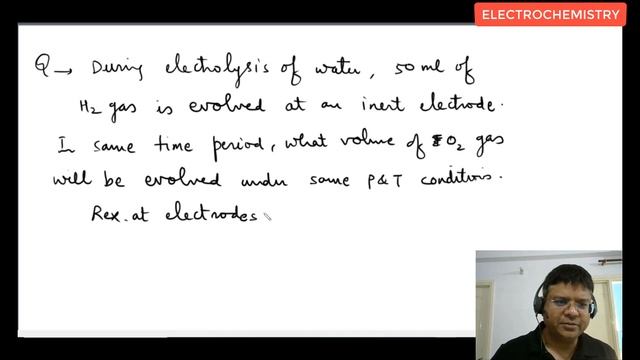 ELECTROCHEMISTRY
Q → During electrolysis of water, 50 ml of
H2 gas is evolved at an inert electrode.
In same time period, what volume of O2 gas
will be evolved under same P&T conditions.
Rex. at electrodes